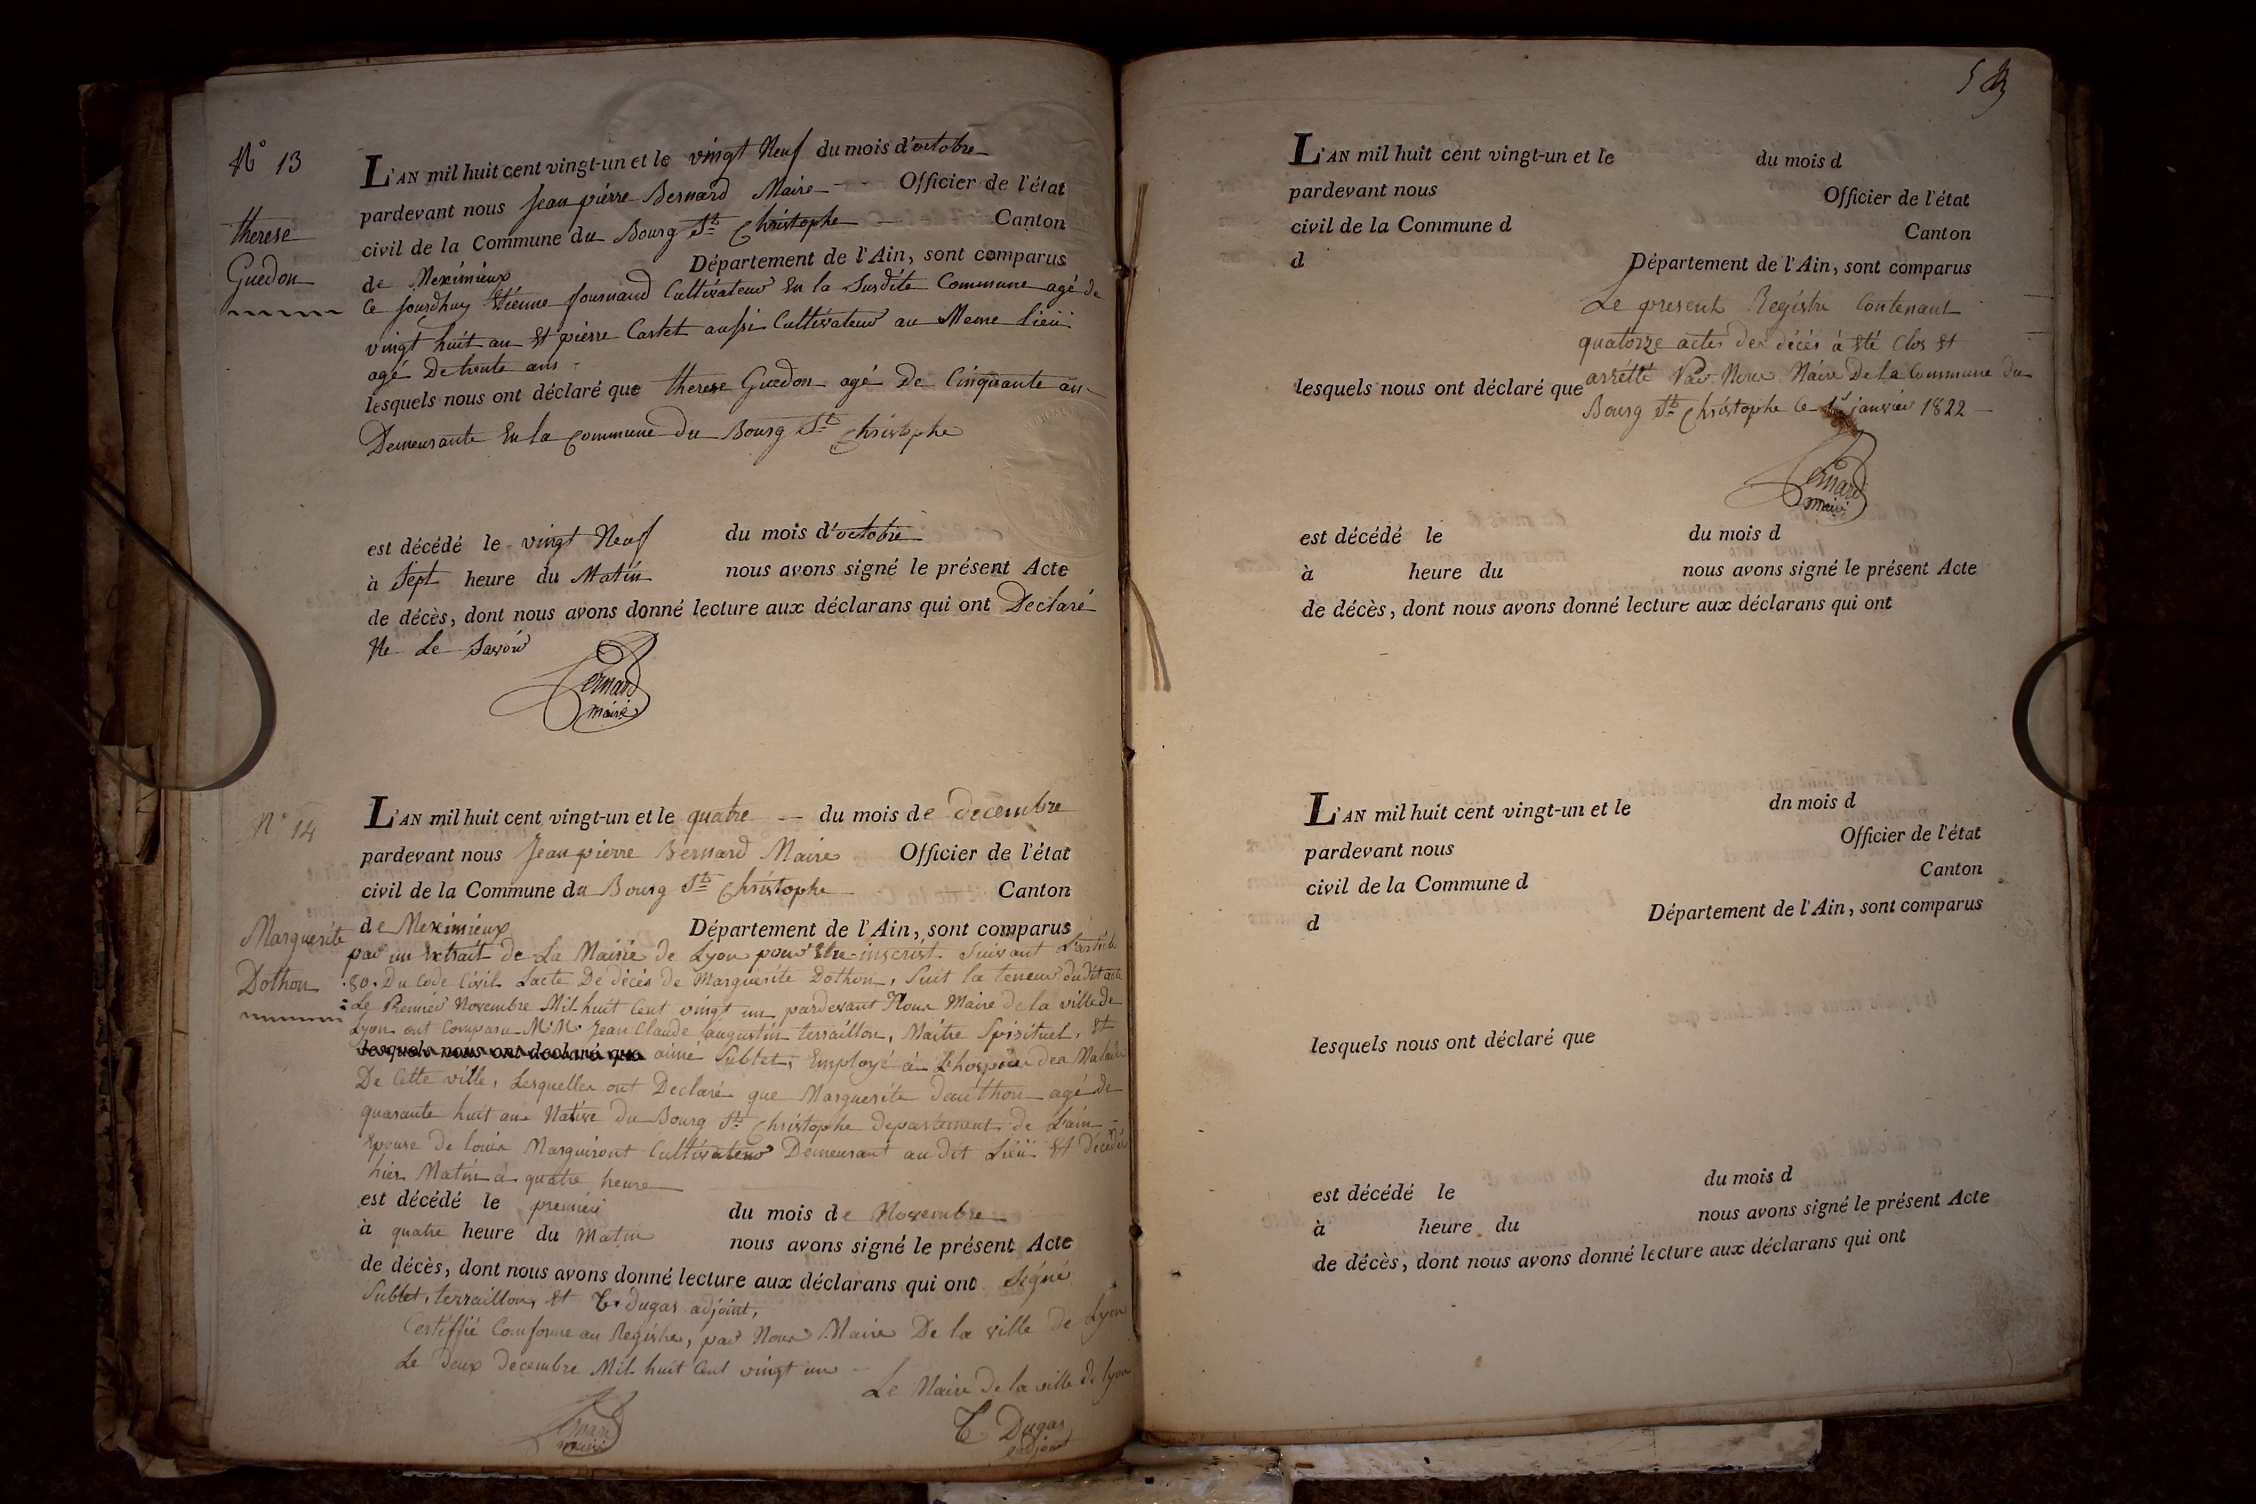 N° 13
therese
Guedon
L'AN mil huit cent vingt-un et le vingt Neuf du mois d'octobre
pardevant nous Jean pierre Bernard Maire Officier de l'état
civil de la Commune du Bourg St Christophe Canton
de Meximieux Département de l'Ain, sont comparus
Ce jourdhuy Etienne journaud Cultivateur En la Susdite Commune agé de
vingt huit an Et pierre Cartet aussi Cultivateur au Meme Lieu
agé De trente ans
lesquels nous ont déclaré que therese Guedon agé De Cinquante an
Demeurante En la Commune du Bourg St Christophe
est décédé le vingt Neuf du mois d'octobre
à Sept heure du Matin nous avons signé le présent Acte
de décès, dont nous avons donné lecture aux déclarans qui ont Declaré
Ne Le Savoir
Bernard
maire
N° 14
Marguerite
Dothon
L'AN mil huit cent vingt-un et le quatre du mois de decembre
pardevant nous Jean pierre Bernard Maire Officier de l'état
civil de la Commune du Bourg St Christophe Canton
de Meximieux Département de l'Ain, sont comparus
par un Extrait de La Mairie de Lyon pour Etre inscrit Suivant L'article
80. Du Code Civil Lacte De décés de Marguerite Dothon, Suit la teneur dudit acte
Le Premier Novembre Mil huit Cent vingt un pardevant Nous Maire de la ville de
Lyon ont Comparu M.M. Jean Claude augustin terraillon, Maitre Spirituel, Et
lesquels nous ont déclaré que aimé Sublet, Employé à Lhospice des Malades
De Cette ville, Lesquelles ont Declaré que Marguerite dauthon agé de
quarante huit ans Native du Bourg St Christophe departement de Lain
Epouse de louis Marguiront Cultivateur Demeurant au dit Lieu Et décédé
hier Matin à quatre heure
est décédé le premier du mois de Novembre
à quatre heure du Matin nous avons signé le présent Acte
de décès, dont nous avons donné lecture aux déclarans qui ont Signé
Sublet, terraillon, Et C. dugas adjoint,
Certiffié Conforme au Registre, par Nous Maire De la ville de Lyon
Le deux decembre Mil huit Cent vingt un
Le Maire de la ville de Lyon
Bernard
maire
C Dugas
adjoint
L'AN mil huit cent vingt-un et le du mois d
pardevant nous Officier de l'état
civil de la Commune d Canton
d Département de l'Ain, sont comparus
Le present Registre Contenant
quatorze actes des décés à Eté Clos Et
arrêtté Par Nous Maire De la Commune du
lesquels nous ont déclaré que
Bourg St Christophe Ce 1er janvier 1822
Bernard
maire
est décédé le du mois d
à heure du nous avons signé le présent Acte
de décès, dont nous avons donné lecture aux déclarans qui ont
L'AN mil huit cent vingt-un et le dn mois d
pardevant nous Officier de l'état
civil de la Commune d Canton
d Département de l'Ain, sont comparus
lesquels nous ont déclaré que
est décédé le du mois d
à heure du nous avons signé le présent Acte
de décès, dont nous avons donné lecture aux déclarans qui ont